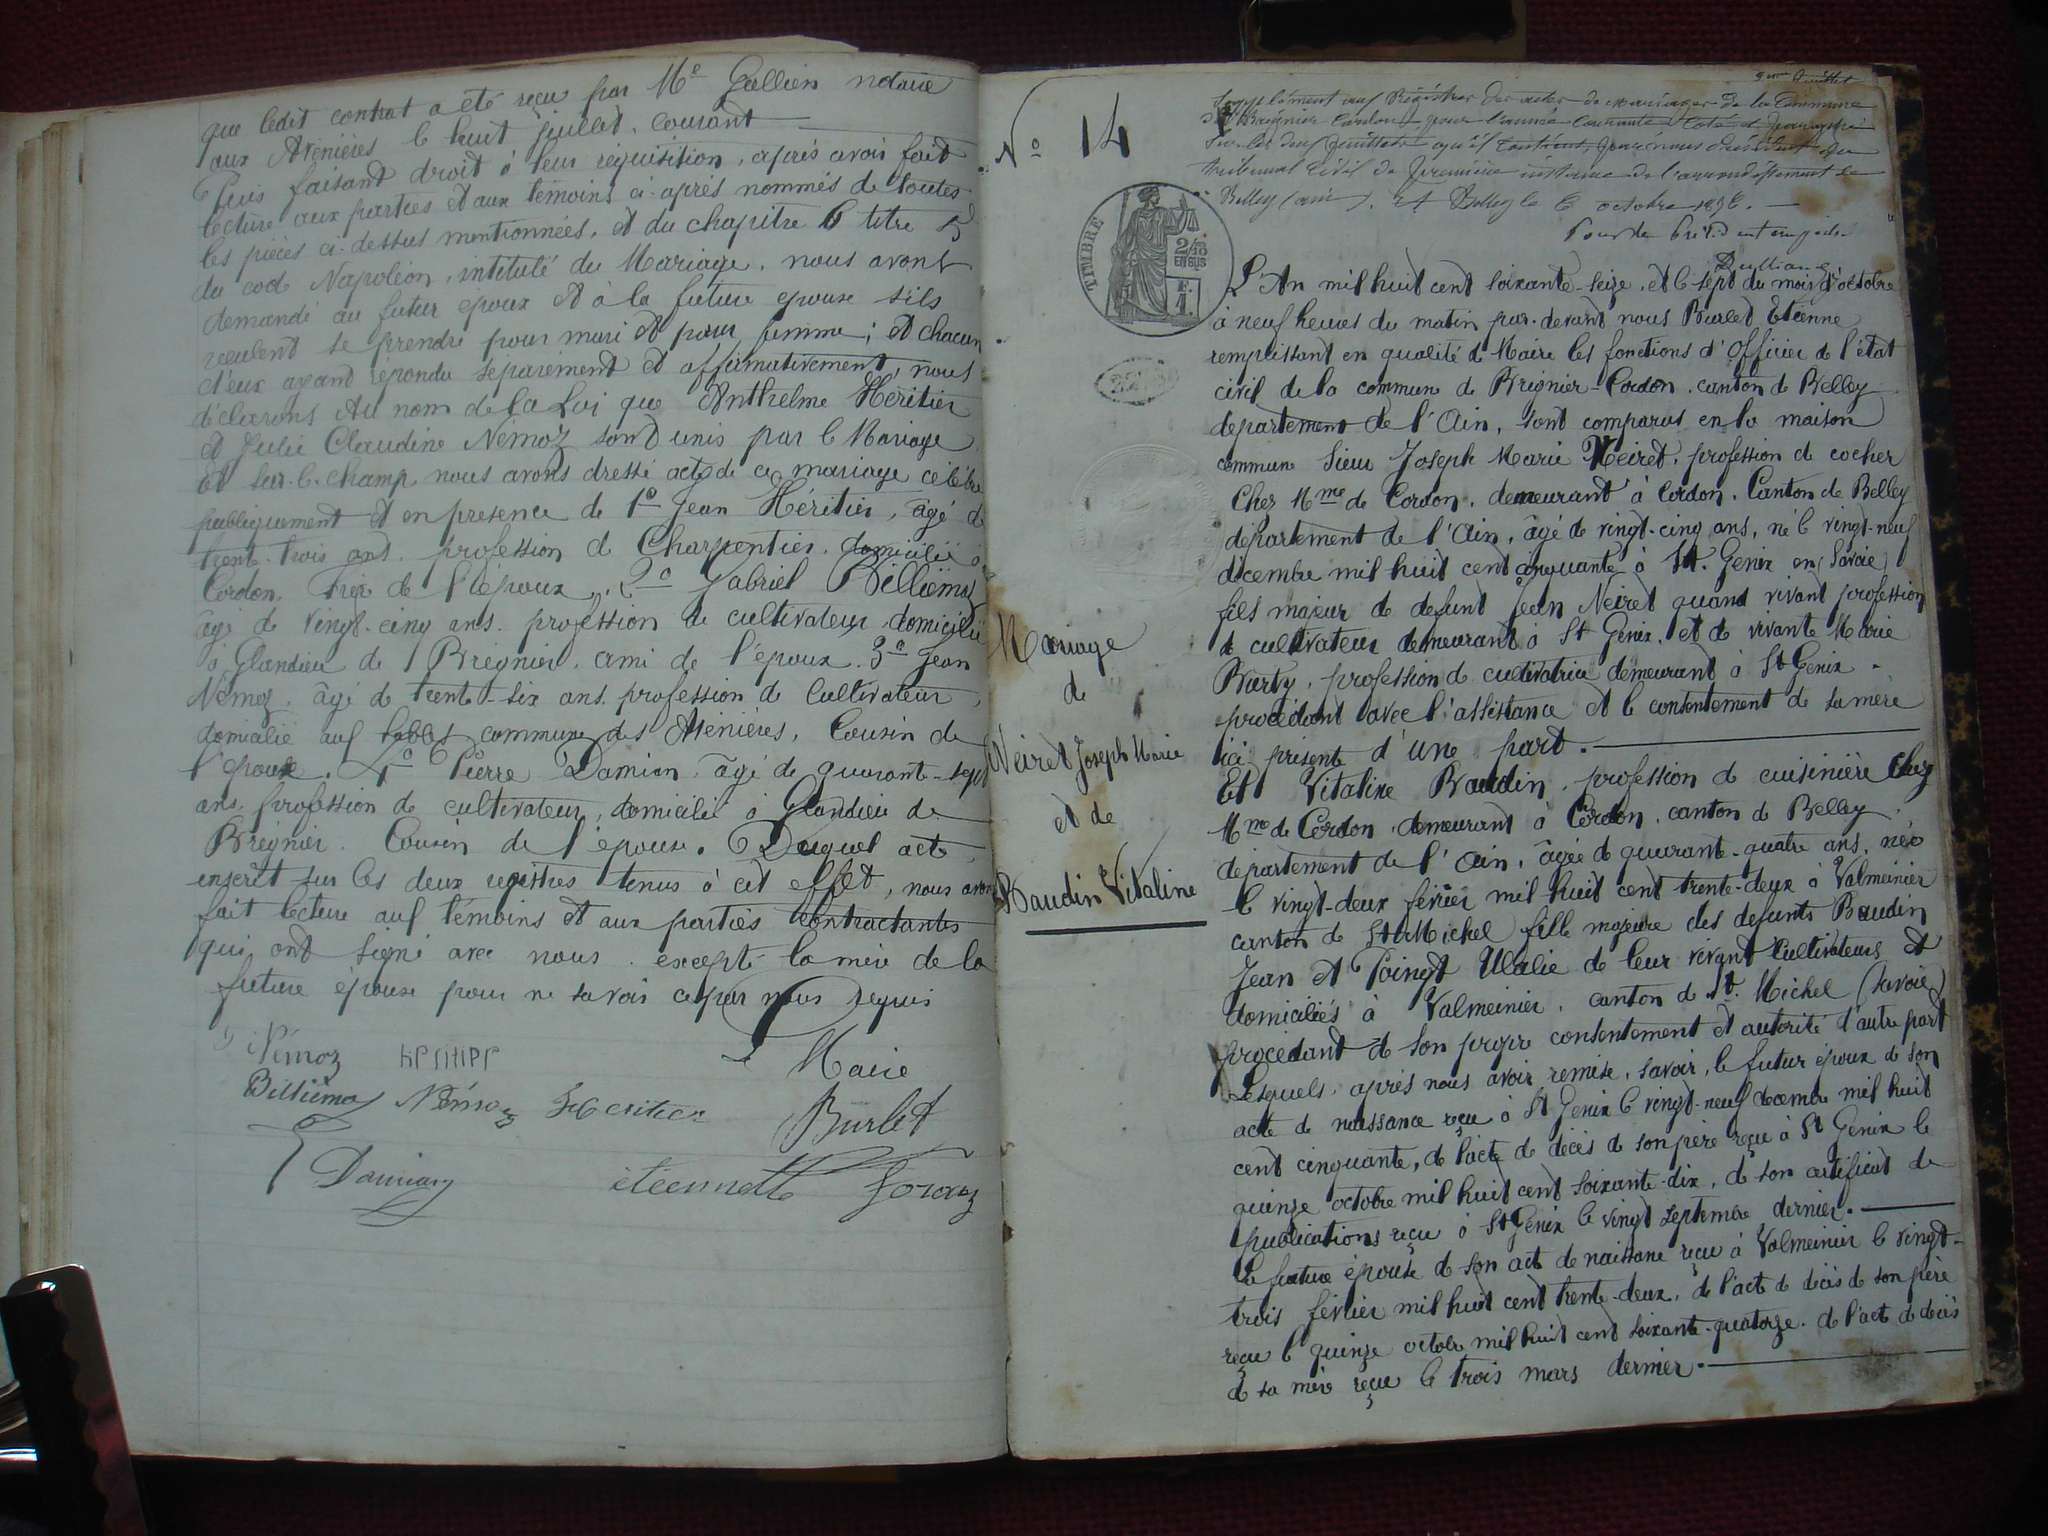 que ledit contrat a été reçu par Me Gallien notaire
aux Avenières le huit juillet courant
Puis faisant droit à leur réquisition, après avoir fait
lecture aux parties et aux témoins ci-après nommés de toutes
les pièces ci-dessus mentionnées, et du chapitre 6 titre 5
du code Napoléon, intitulé du Mariage, nous avons
demandé au futur époux et à la future epouse s'ils
veulent se prendre pour mari et pour femme ; et chacun
d'eux ayant répondu séparement et affirmativement, nous
déclarons Au nom de la Loi que Anthelme Héritier
et Julie Claudine Némoz sont unis par le Mariage
Et sur-le-champ nous avons dressé acte de ce mariage célébré
publiquement et en presence de 1º Jean Héritier, âgé de
trente-trois ans, profession de Charpentier, domicilié à
Cordon, frère de l'époux, 2º Gabriel Billiémaz
âgé de vingt-cinq ans, profession de cultivateur, domicilié
à Glandieu de Brégnier, ami de l'époux, 3º Jean
Némoz, âgé de trente-six ans, profession de Cultivateur,
domicilié aux Sables commune des Avenières, Cousin de
l'épouse. 4º Pierre Damian, âgé de quarant-sept
ans, profession de cultivateur, domicilié à Glandieu de
Brégnier, Cousin de l'épouse. Duquel acte,
inscrit sur les deux registres tenus à cet effet, nous avons
fait lecture aux témoins et aux parties contractantes
qui ont signé avec nous, excepté la mère de la
future épouse pour ne savoir ce par nous requis
Némoz Maire
Billiémaz Némoz Héritier Burlet
Damian
Nº 14
Supplément aux Régistres des actes de mariages de la Commune
de Brégnier Cordon pour l'année courante Coté et paraphé
Sur les deux feuillets qu'il contient, par nous président du
tribunal Civil de première instance de l'arrondissement de
Belley (ain). A Belley le 6 octobre 1876.
Pour le Président
TIMBRE
2/10
EN SUS
1 F.
L'An mil huit cent soixante-seize, et le sept du mois d'octobre
à neuf heures du matin par-devant nous Burlet Etienne
remplissant en qualité de Maire les fonctions d'Officier de l'état
civil de la commune de Brégnier-Cordon, canton de Belley
departement de l'Ain, sont comparus en la maison
commune Sieur Joseph Marie Neiret, profession de cocher
Chez Mme de Cordon, demeurant à Cordon, Canton de Belley
département de l'Ain, âgé de vingt-cinq ans, né le vingt-neuf
décembre mil huit cent cinquante à St. Genix en (Savoie)
fils majeur de defunt Jean Neiret quand vivant profession
de cultivateur demeurant à St Genix, et de vivante Marie
Barty, profession de cultivatrice demeurant à St Genix.
procédant avec l'assistance et le consentement de sa mère
ici présente d'une part.
Et Vitaline Baudin, profession de cuisinière Chez
Mme de Cordon, demeurant à Cordon, canton de Belley
département de l'Ain, âgée de quarante-quatre ans, née
le vingt-deux février mil huit cent trente-deux à Valmeinier
canton de St Michel fille majeure des defunts Baudin
Jean et Poingt Ulalie de leur vivant Cultivateurs et
domiciliés à Valmeinier, canton de St. Michel (Savoie)
procedant de son propre consentement et autorité d'autre part
Lesquels, après nous avoir remise, savoir, le futur époux de son
acte de naissance reçu à St Genix le vingt-neuf decembre mil huit
cent cinquante, de l'acte de décès de son père reçu à St Genix le
quinze octobre mil huit cent soixante-dix, de son certificat de
publications reçu à St Genix le vingt septembre dernier.
La future épouse de son acte de naissance reçu à Valmeinier le vingt-
trois février mil huit cent trente-deux, de l'acte de décès de son père
reçu le quinze octobre mil huit cent soixante-quatorze, de l'acte de décès
de sa mère reçu le trois mars dernier.
Mariage
de
Neiret Joseph Marie
et de
Baudin Vitaline